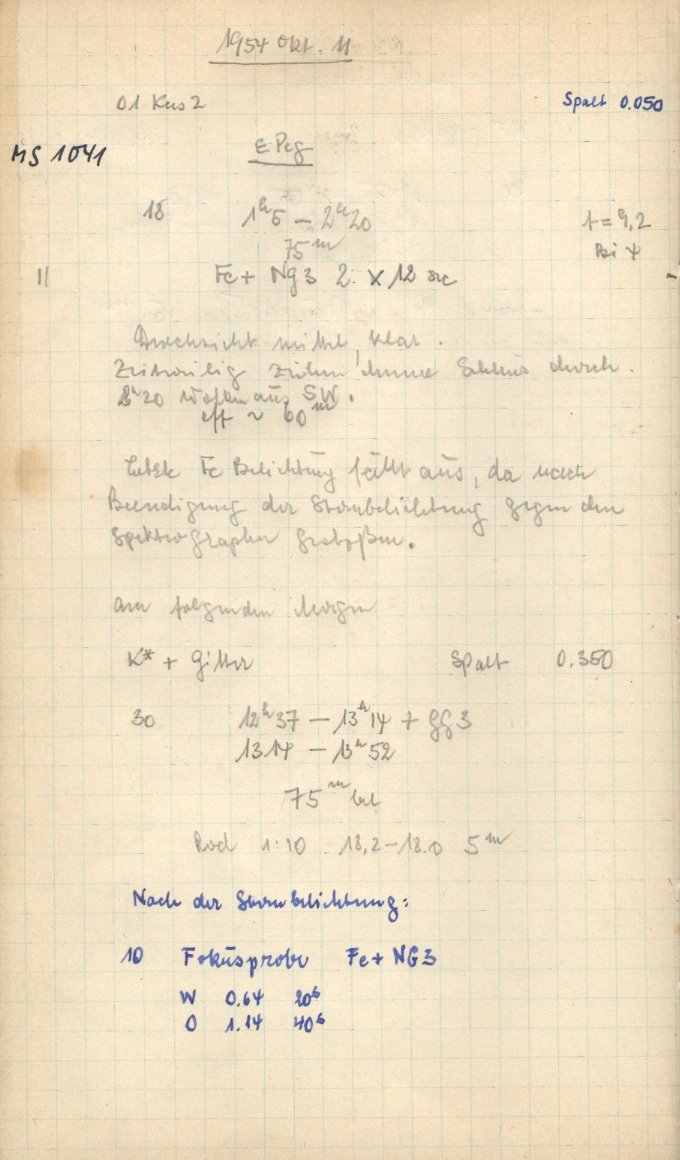 1954 Okt. 11
01 Kas 2 Spalt 0.050
MS 1041 ε Peg
18 1h5 – 2h20 t = 9,2
75m Bei
11 Fe + Ng3 2 × 12 sec
Durchsicht mittel, klar.
Zeitweilig ziehen dünne durch.
2h20 Wolken aus SW.
eff ~ 60m
Letzte Fe Belichtung fällt aus, da nach
Beendigung der Sternbelichtung gegen den
Spektrographen gestoßen.
Am folgenden Morgen
K* + Gitter Spalt 0.350
30 12h37 – 13h14 + GG3
1314 – 13h52
75m bel
Rod 1:10 18,2 – 18.0 5m
Nach der Sternbelichtung:
10 Fokusprobe Fe + NG3
W 0.64 20s
O 1.14 40s